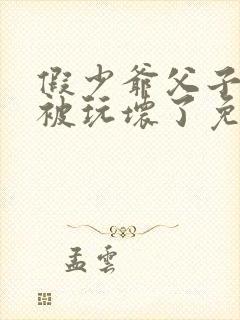 假少爷父子
被玩坏了免
孟雲